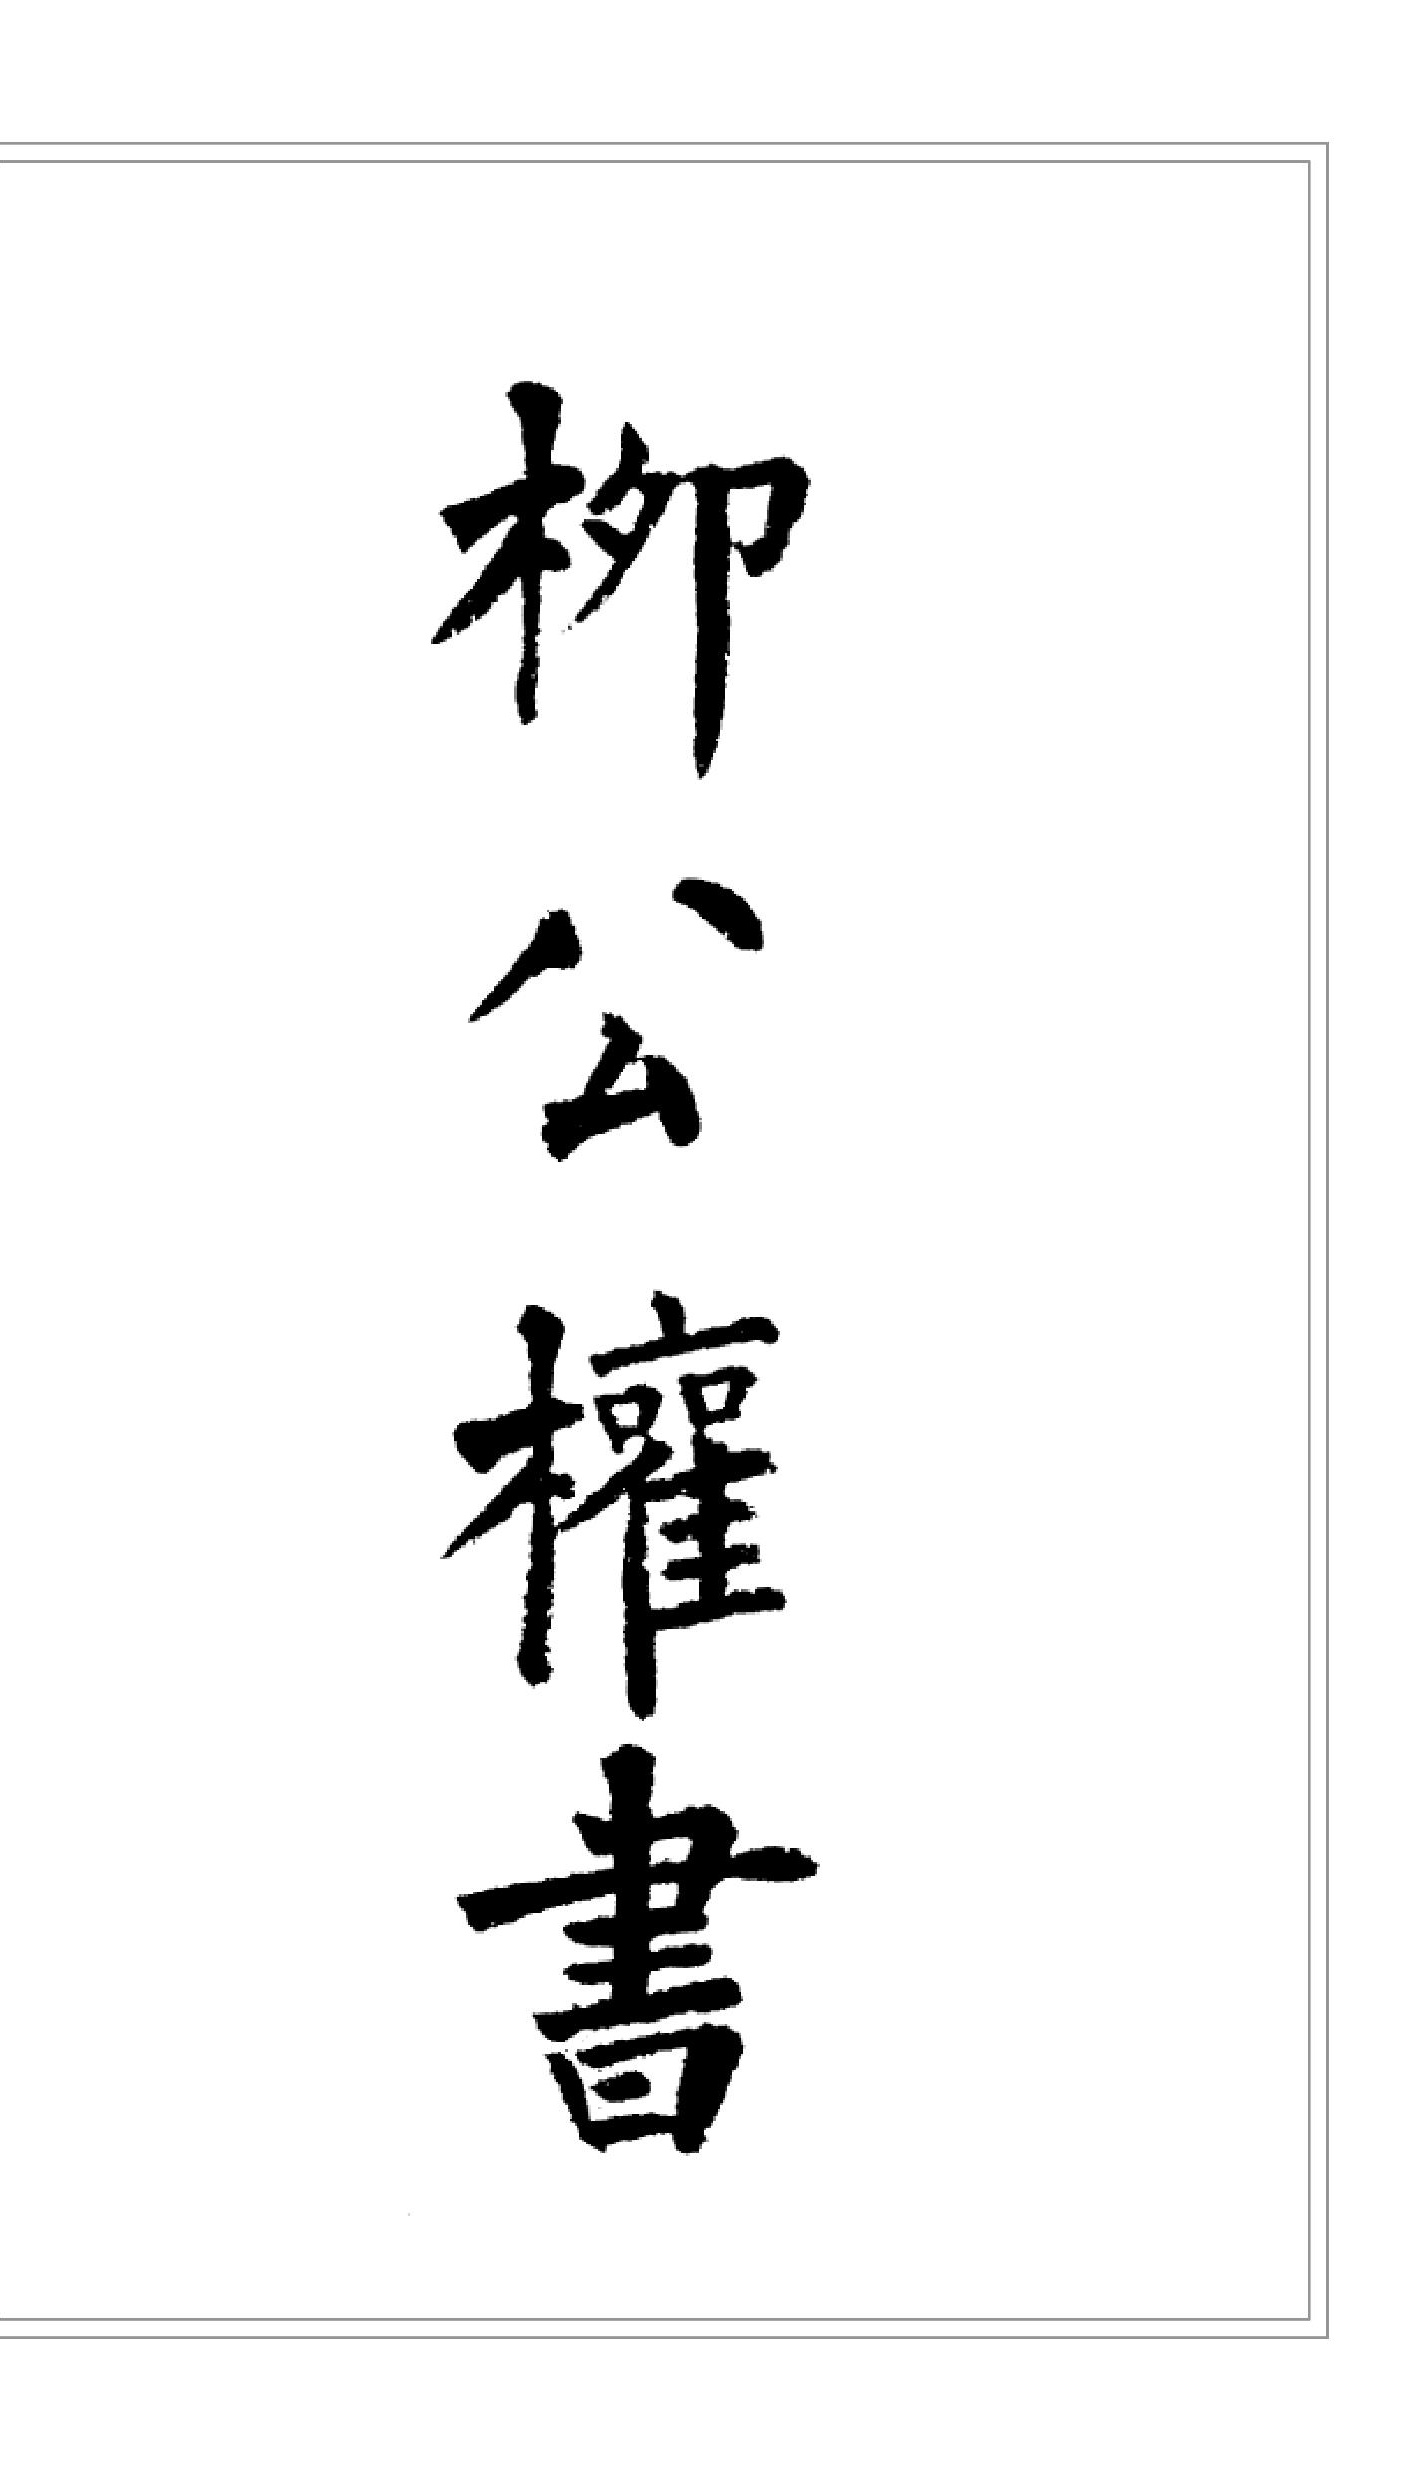 柳公權書